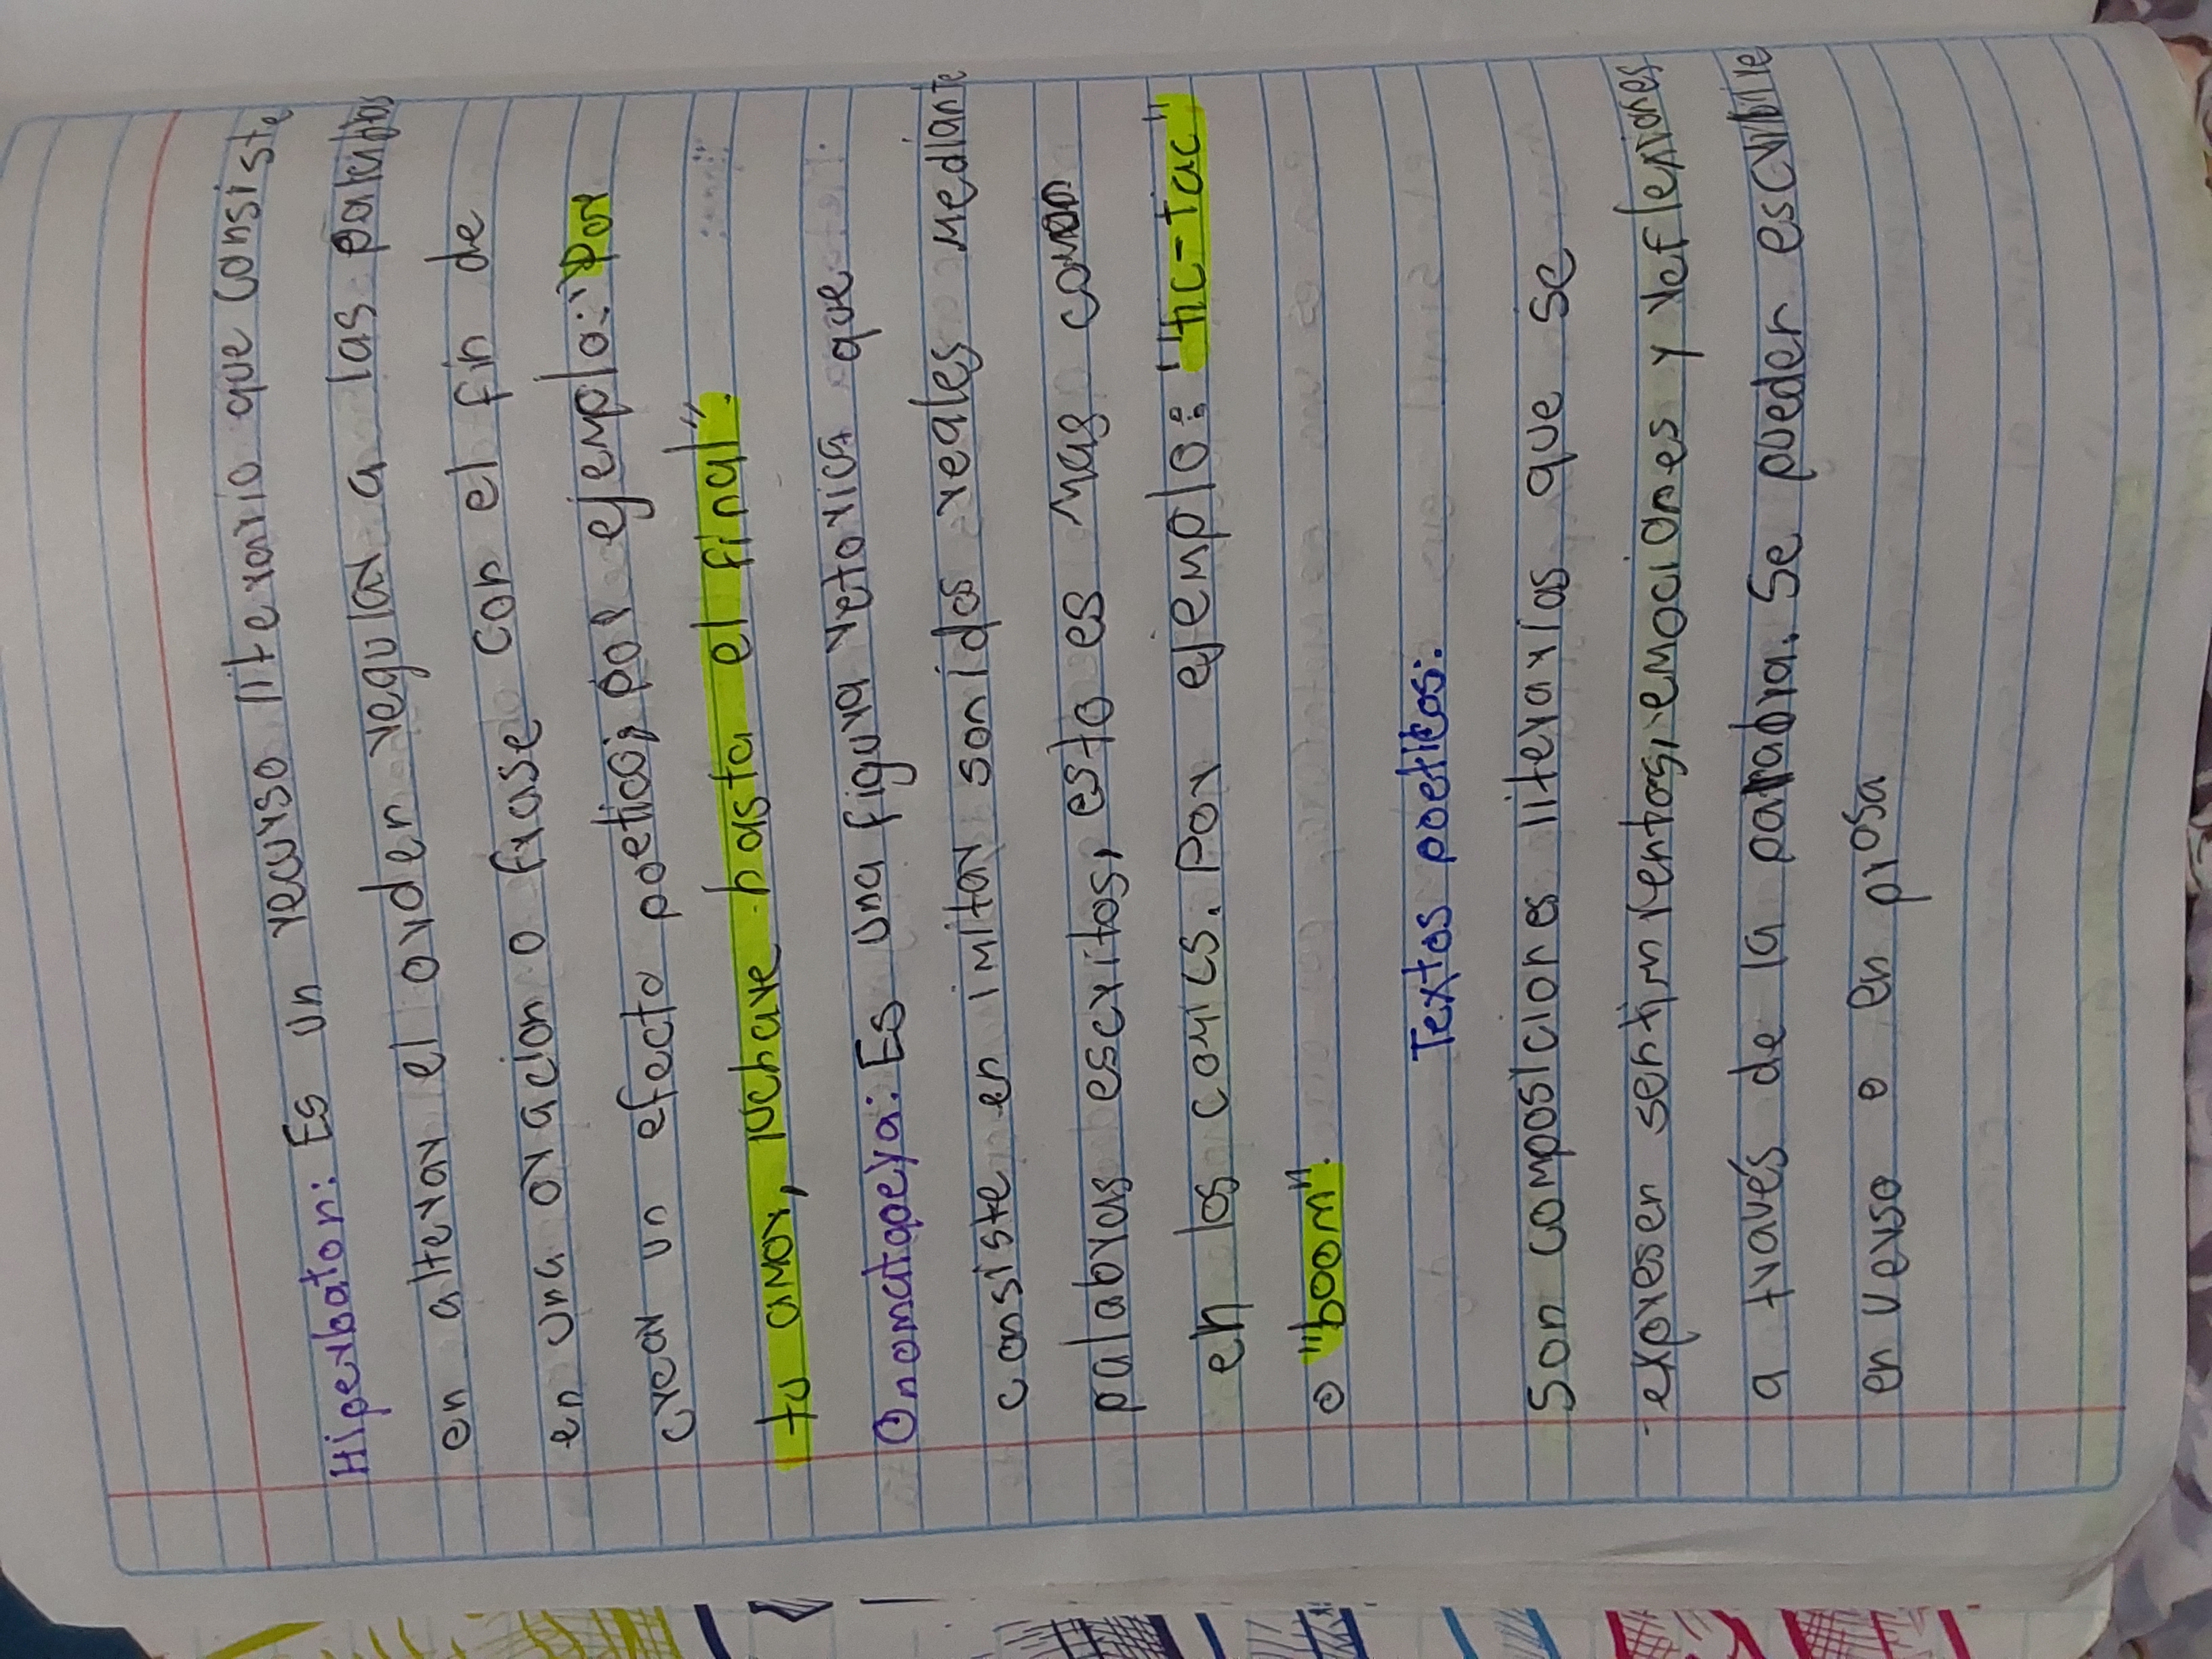 Hiperbaton: Es un recurso literario que consiste
en alterar el orden regular a las palabras
en una oracion o frase con el fin de
crear un efecto poetico; por ejemplo: "Por
tu amor, luchare hasta el final".
Onomatopeya: Es una figura retorica que
consiste en imitar sonidos reales mediante
palabras escritos, esto es mas comun
en los comics. Por ejemplo: "tic-tac"
o "boom".
Textos poeticos:
Son composiciones literarias que se
expresen sentimientos, emociones y reflexiones
a través de la palabra. Se pueden escribire
en verso o en prosa